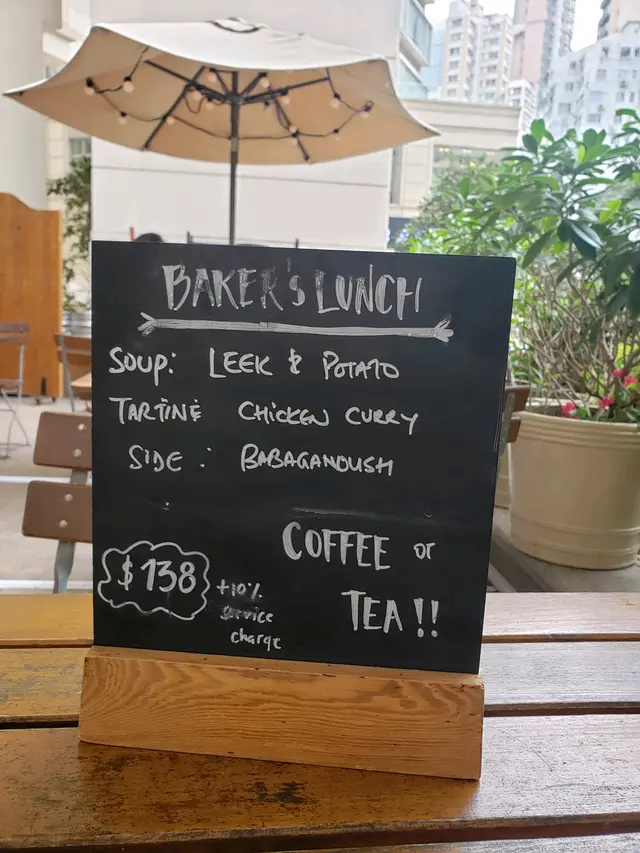 BAKER'S LUNCH
SOUP: LEEK & POTATO
TARTINE CHICKEN CURRY
SIDE : BABAGANOUSH
COFFEE or
TEA!!
$138
+10%
service
charge